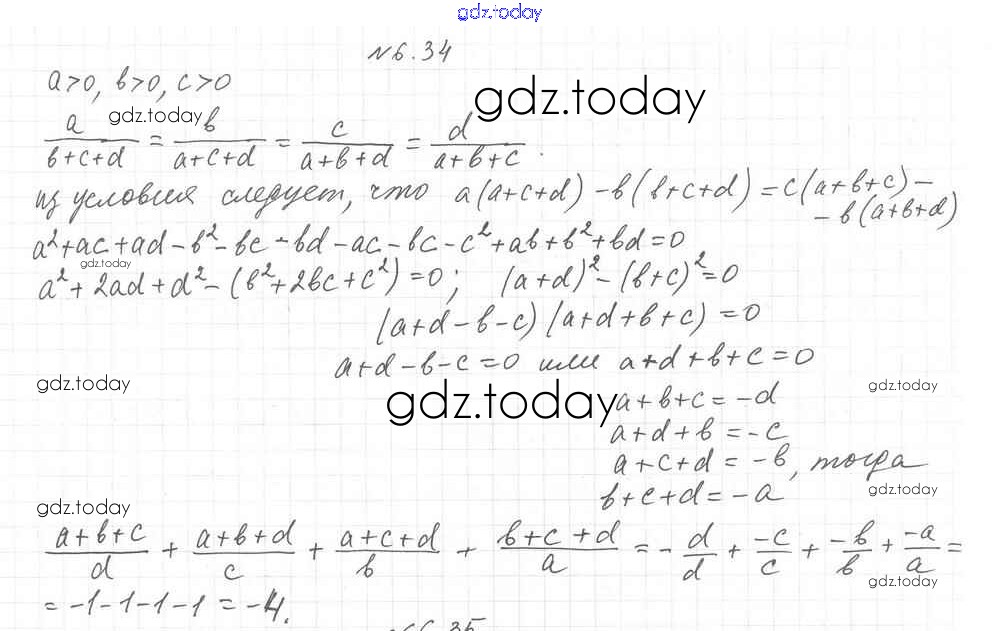 gdz.today
N6.34
a>0, b>0, c>0
gdz.today
gdz.today
a/(b+c+d) = b/(a+c+d) = c/(a+b+d) = d/(a+b+c).
из условия следует, что a(a+c+d)-b(b+c+d)=c(a+b+c)-
-b(a+b+d)
a²+ac+ad-b²-bc-bd-ac-bc-c²+ab+b²+bd=0
gdz.today
a²+2ad+d²-(b²+2bc+c²)=0; (a+d)²-(b+c)²=0
(a+d-b-c)(a+d+b+c)=0
a+d-b-c=0 или a+d+b+c=0
gdz.today
gdz.today
gdz.today
a+b+c=-d
a+d+b=-c
a+c+d=-b, тогда
gdz.today
b+c+d=-a
gdz.today
(a+b+c)/d + (a+b+d)/c + (a+c+d)/b + (b+c+d)/a = -d/d + -c/c + -b/b + -a/a =
gdz.today
= -1-1-1-1 = -4.